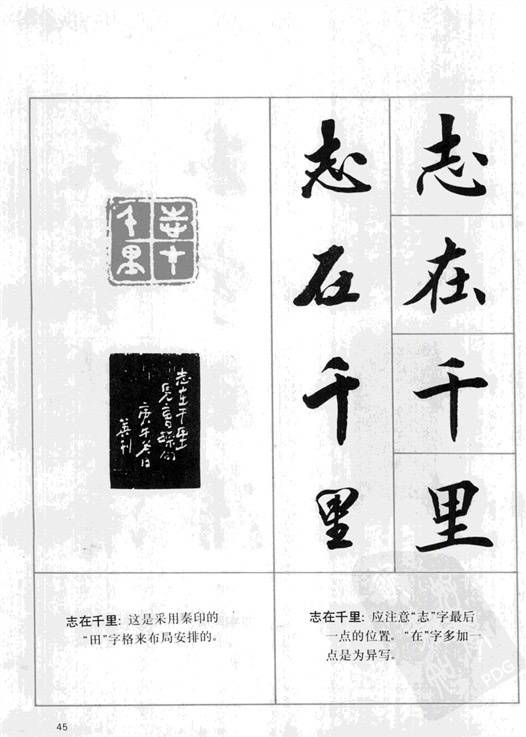 志
在
千
里
志
在
千
里
志在千里
志在千里
庚午
志在千里：这是采用秦印的
“田”字格来布局安排的。
志在千里：应注意“志”字最后
一点的位置。“在”字多加一
点是为异写。
45
PDG